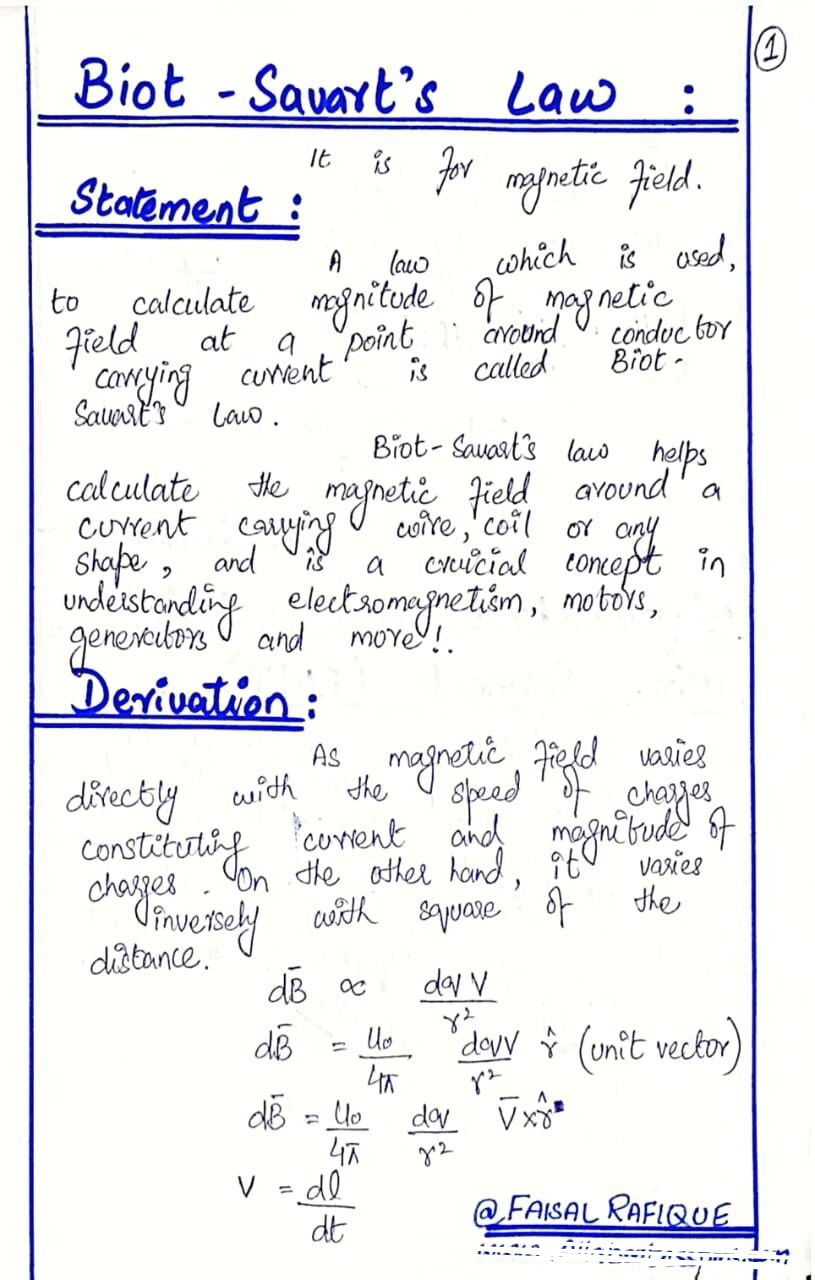 1
Biot - Savart's Law :
It is for magnetic field.
Statement :
A law which is used,
to calculate magnitude of magnetic
field at a point around conductor
carrying current is called Biot-
Savart's Law.
Biot-Savart's law helps
calculate the magnetic field around a
current carrying wire, coil or any
shape, and is a cruicial concept in
understanding electromagnetism, motors,
generators and more!.
Derivation :
As magnetic field varies
directly with the speed of charges
constituting current and magnitude of
charges. On the other hand, it varies
inversely with square of the
distance.
dB̄ ∝ dqV/r²
dB̄ = μ₀/4π dqV/r² r̂ (unit vector)
dB̄ = μ₀/4π dq/r² V̄ × r̂
V = dl/dt
@FAISAL RAFIQUE